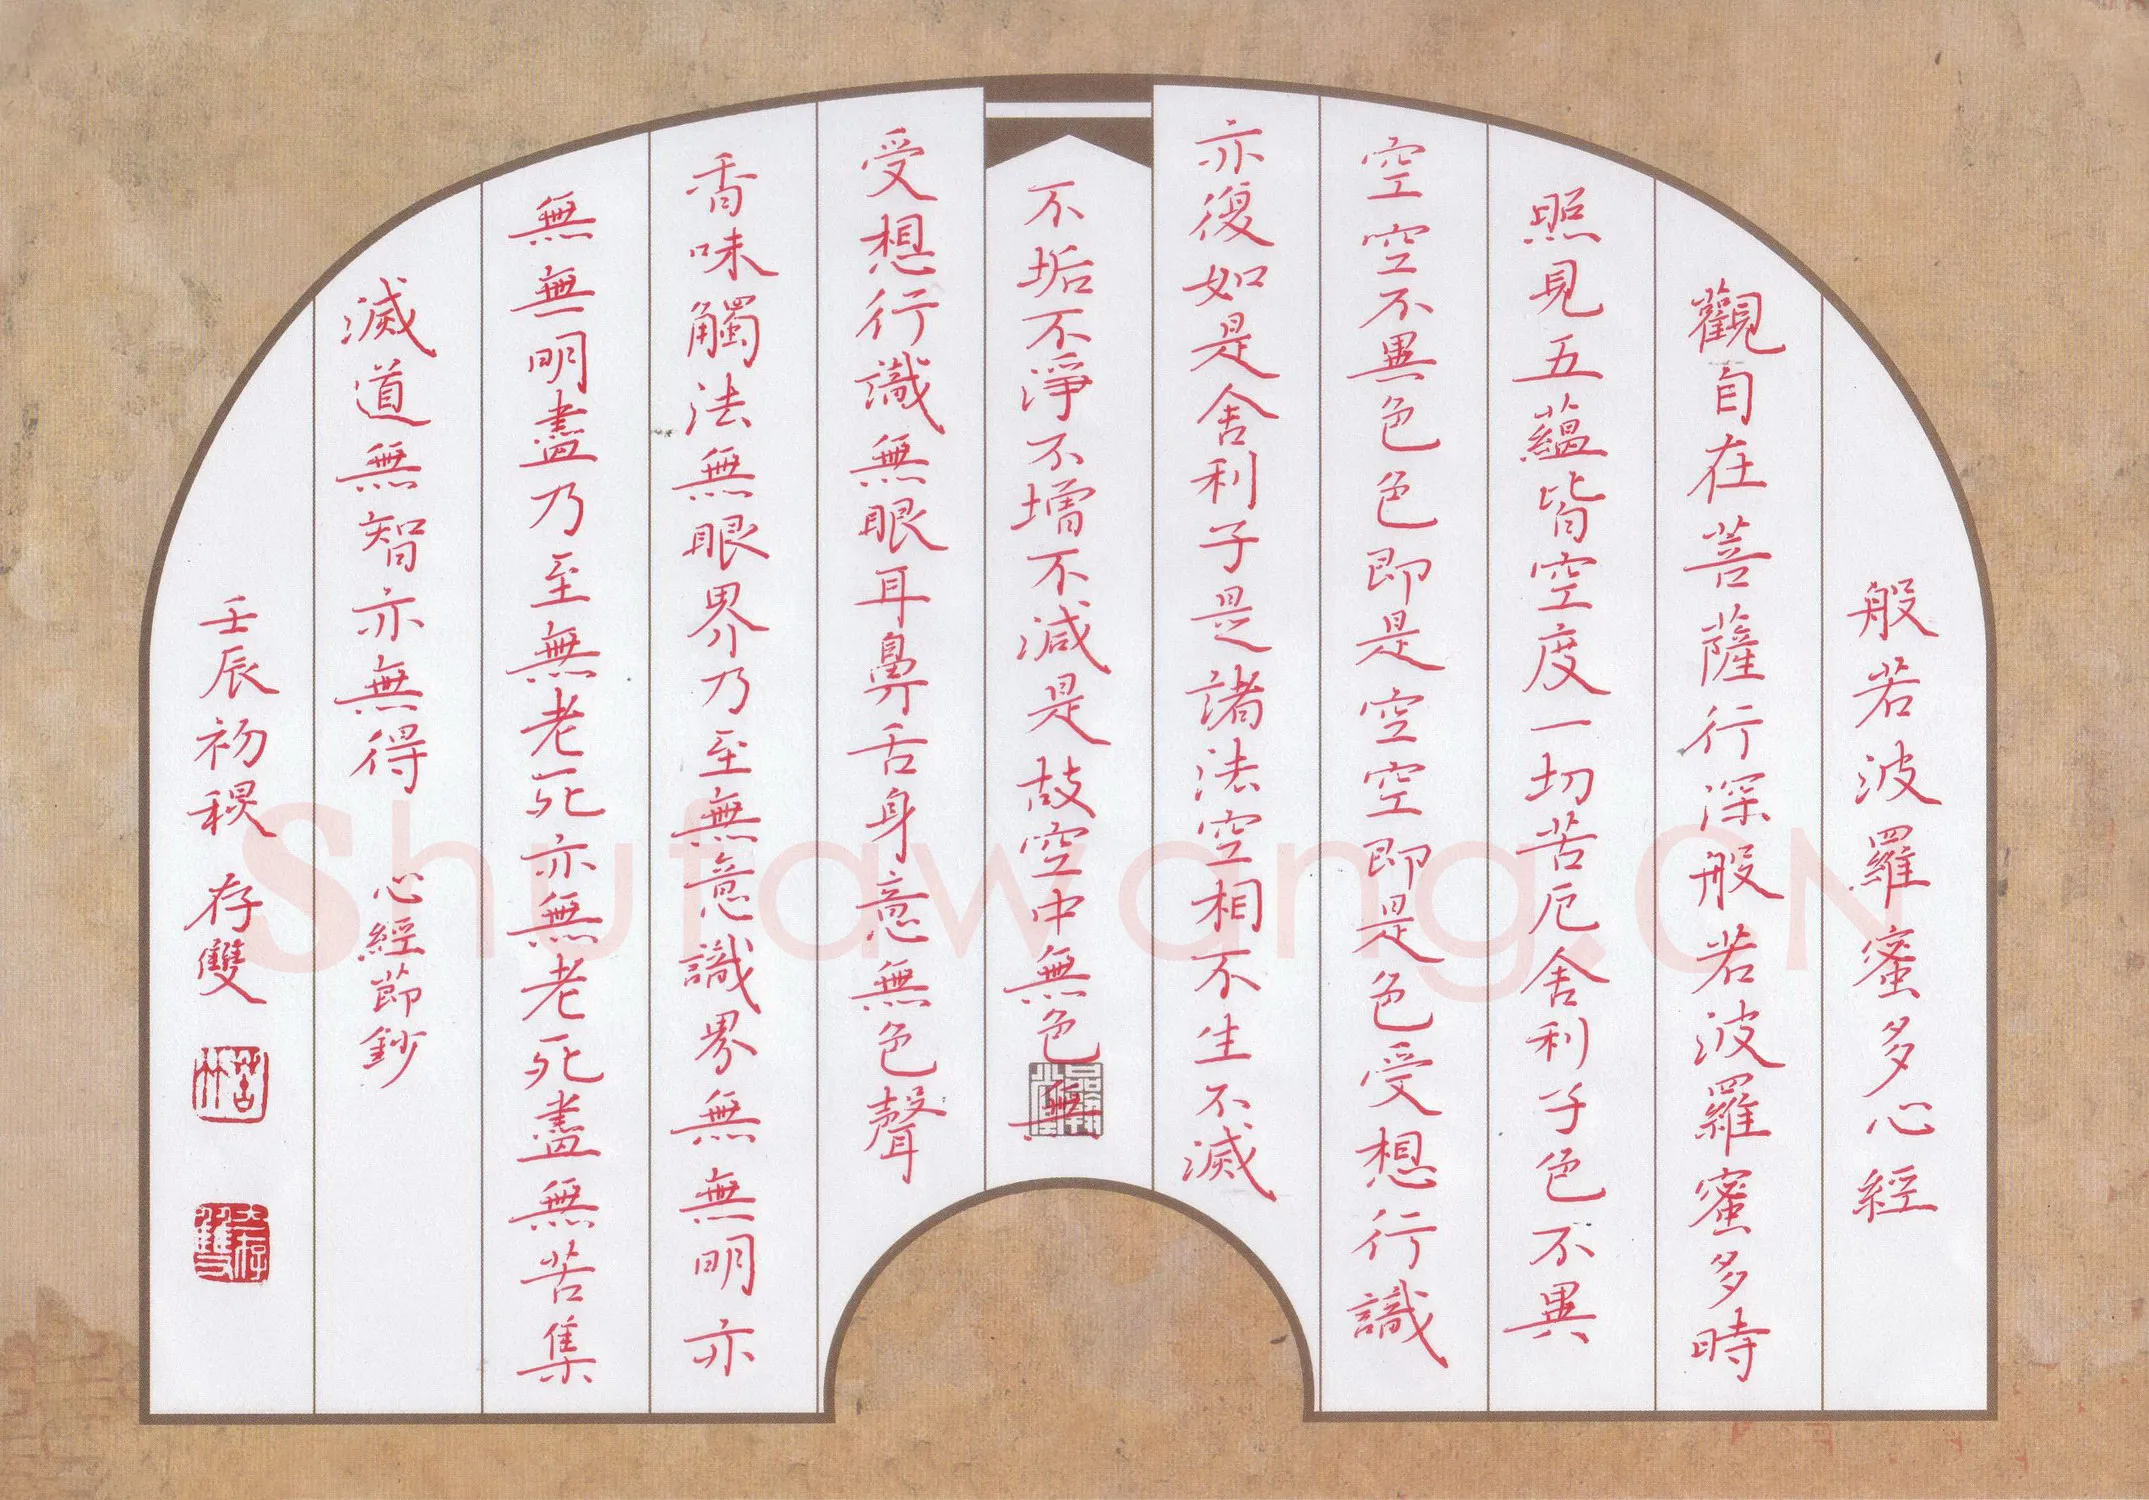 般若波羅蜜多心經
觀自在菩薩行深般若波羅蜜多時
照見五蘊皆空度一切苦厄舍利子色不異
空空不異色色即是空空即是色受想行識
亦復如是舍利子是諸法空相不生不滅
不垢不淨不增不減是故空中無色無
受想行識無眼耳鼻舌身意無色聲
香味觸法無眼界乃至無意識界無無明亦
無無明盡乃至無老死亦無老死盡無苦集
滅道無智亦無得 心經節鈔
壬辰初稷 存雙
Shufawang.CN